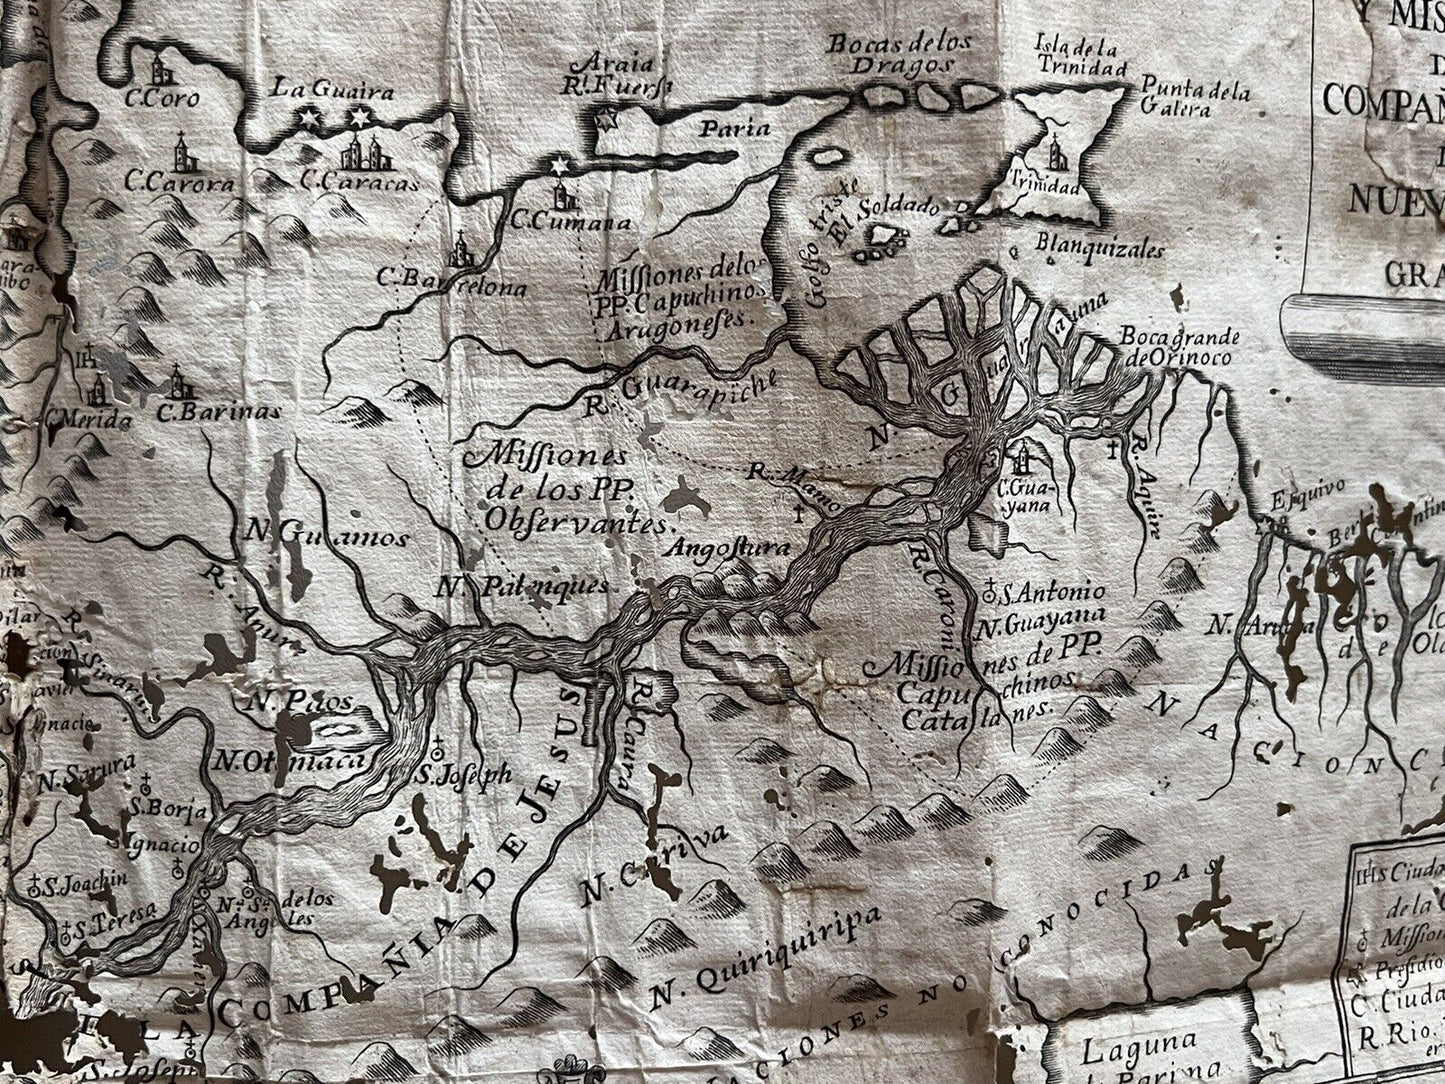 Y MIS
D
COMPAÑ
NUEV
GRA
C.Coro
La Guaira
Araia
Rl. Fuersa
Bocas de los
Dragos
Isla de la
Trinidad
Punta de la
Galera
Paria
C.Carora
C.Caracas
C.Cumana
Trinidad
Golfo triste
El Soldado
Blanquizales
C.Barcelona
Miſſiones de los
PP. Capuchinos
Aragoneſes.
N. Guarauna
Boca grande
de Orinoco
C.Merida
C.Barinas
R. Guarapiche
Miſſiones
de los PP.
Obſervantes.
R. Mamo
C.Gua-
yana
R. Aquire
Eſquivo
N. Guamos
Angoſtura
R. Caroni
N. Palenques
R. Apure
S.Antonio
N.Guayana
Miſſiones de PP.
Capuchinos
Catalanes.
R. Sinaru
Ignacio
N. Paos
R. Caura
N. Otomaca
S.Joſeph
N. Sarura
S.Borja
S.Ignacio
S.Joachin
S.Teresa
N.ª S.ª de los
Angeles
N. Cariva
N. Quiriquiripa
LA COMPAÑIA DE JESUS
NACIONES NO CONOCIDAS
NACION
de
S.Joſeph
Laguna
Parina
IHS Ciuda
de la C
Miſſion
Preſidio
C. Ciuda
R. Rio.